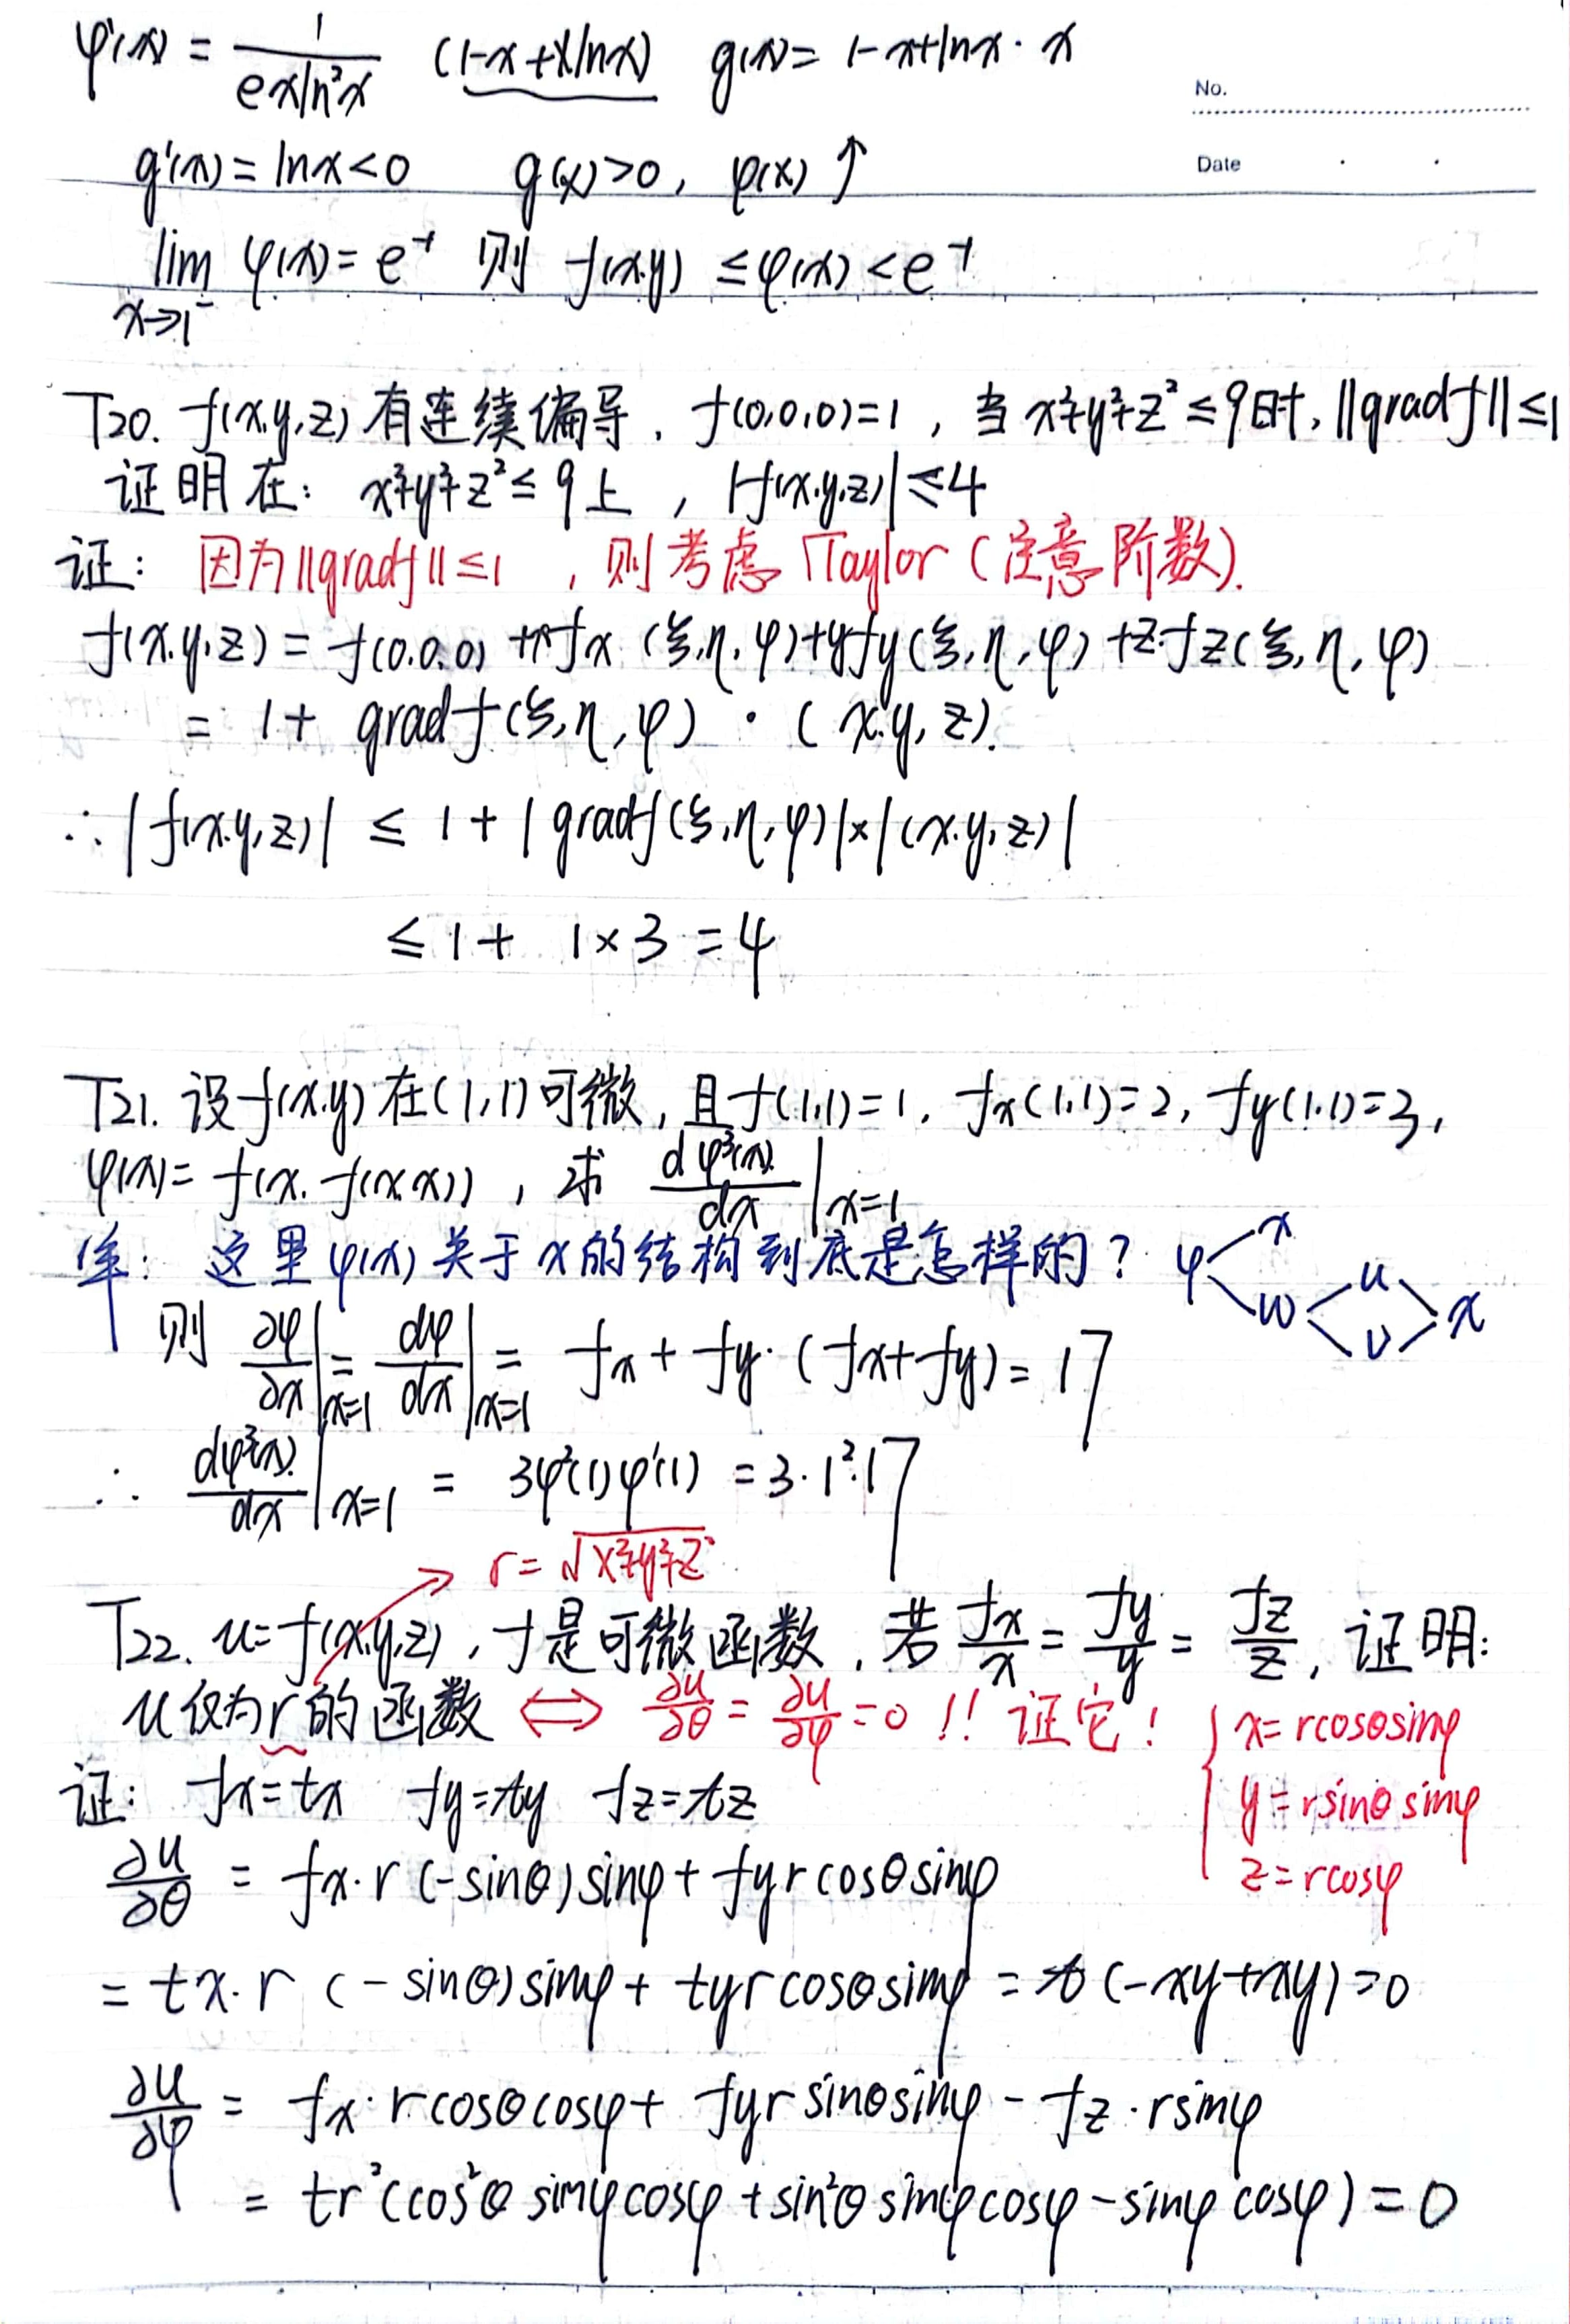 φ'(x) = 1/(exln²x) (1-x+xlnx) g(x)= 1-x+lnx·x
No.
g'(x) = lnx<0 g(x)>0, φ(x)↑
Date
lim x→1⁻ φ(x)= e⁻¹ 则 f(x,y) ≤φ(x)<e⁻¹
T20. f(x,y,z)有连续偏导, f(0,0,0)=1, 当x²+y²+z²≤9时, ||gradf||≤1
证明在: x²+y²+z²≤9上, |f(x,y,z)|≤4
证: 因为||gradf||≤1, 则考虑Taylor(注意阶数).
f(x,y,z) = f(0,0,0) +x·fx(ξ,η,φ)+yfy(ξ,η,φ)+z·fz(ξ,η,φ)
= 1+ gradf(ξ,η,φ) · (x,y,z).
∴|f(x,y,z)| ≤ 1+|gradf(ξ,η,φ)|×|(x,y,z)|
≤ 1+ 1×3 =4
T21. 设f(x,y)在(1,1)可微, 且f(1,1)=1, fx(1,1)=2, fy(1,1)=3,
φ(x)= f(x, f(x,x)), 求 dφ³(x)/dx |x=1
解: 这里φ(x)关于x的结构到底是怎样的? φ x w u v x
则 ∂φ/∂x |x=1 = dφ/dx |x=1 = fx+fy·(fx+fy)= 17
∴ dφ³(x)/dx |x=1 = 3φ²(1)φ'(1) =3·1²·17
r=√x²+y²+z²
T22. u=f(x,y,z), f是可微函数, 若 fx/x = fy/y = fz/z, 证明:
u仅为r的函数 ⇔ ∂u/∂θ = ∂u/∂φ =0 !! 证它! { x=rcosθsinφ
y=rsinθsinφ
z=rcosφ
证: fx=tx fy=ty fz=tz
∂u/∂θ = fx·r(-sinθ)sinφ+ fyrcosθsinφ
= tx·r (-sinθ)sinφ+ tyrcosθsinφ = t(-xy+xy)=0
∂u/∂φ = fx·rcosθcosφ+ fyrsinθsinφ - fz·rsinφ
= tr²(cos²θ sinφcosφ+sin²θsinφcosφ-sinφcosφ)=0